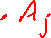 . A j